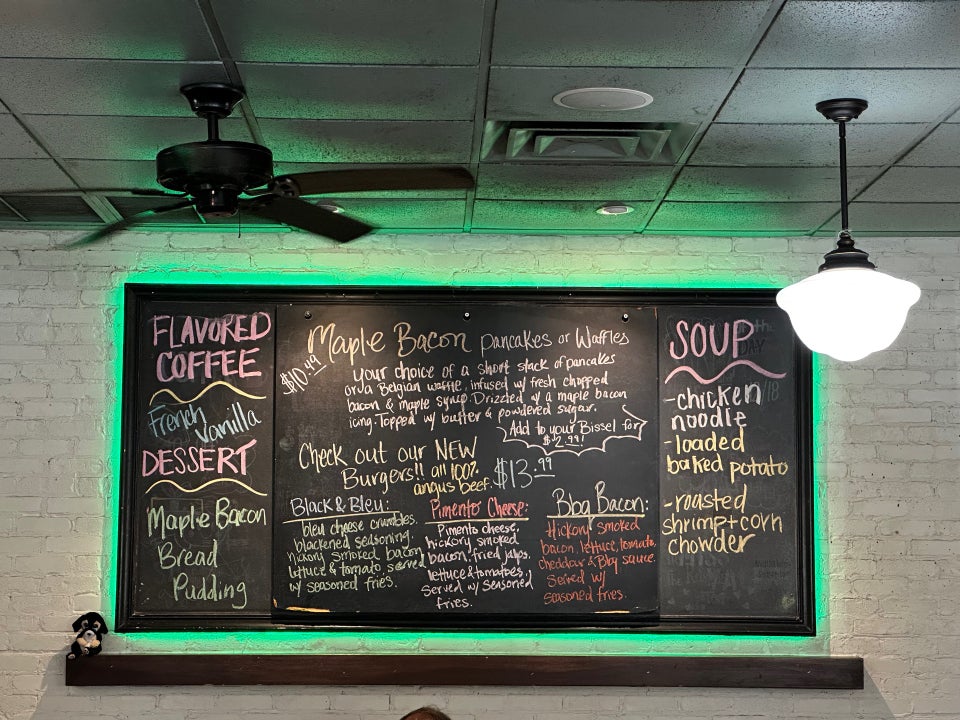 FLAVORED
COFFEE
French
Vanilla
DESSERT
Maple Bacon
Bread
Pudding
Maple Bacon Pancakes or Waffles
$10.49
your choice of a short stack of pancakes
or a Belgian waffle, infused w/ fresh chopped
bacon & maple syrup. Drizzled w/ a maple bacon
icing. Topped w/ butter & powdered sugar.
Add to your Bissel for
$2.99!
Check out our NEW
Burgers!! all 100%
angus beef.
$13.99
Black & Bleu:
bleu cheese crumbles.
blackened seasoning.
hickory smoked bacon
lettuce & tomato, served
w/ seasoned fries.
Pimento Cheese:
Pimento cheese,
hickory smoked
bacon, fried japs.
lettuce & tomatoes.
Served w/ Seasoned
fries.
Bbq Bacon:
Hickory smoked
bacon, lettuce, tomato,
cheddar & Bbq sauce.
Served w/
seasoned fries.
SOUP
-chicken
noodle
-loaded
baked potato
-roasted
shrimp + corn
chowder